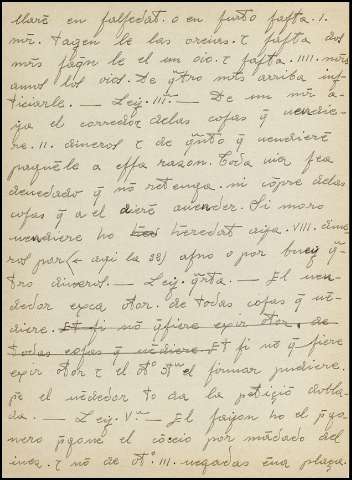 llare en falsedat. o en furto fasta .I.
mr. tagen le las oreias. τ fasta dos
mrs saqn le el un oio. τ fasta .IIII. mrs
amos los oios. De q̃tro mrs arriba ius-
ticiarle. — Ley. IIIª — De un mr a-
ya el corredor delas cosas q̃ uendie-
re .II. dineros τ de q̃nto q̃ uendiere
paguẽle a essa razon. Toda uia sea
deuedado q̃ nõ retenga. ni cõpre delas
cosas q̃ a el dierẽ auender. Si moro
uendiere ho heredat aya .VIII. dine
ros por (← aqui la 38) asno o por buey q̃-
tro dineros. — Ley. q̃rta. — El uen-
dedor exca otor. de todas cosas q̃ uẽ-
diere. Et si nõ q̃siere exir otor. de
todas cosas q̃ uẽdiere Et si nõ q̃siere
exir otor τ el firmar pudiere.
el uẽdedor to da la peticiõ dobla-
da. — Ley. Vª — El sayon ho el p̃go-
nero p̃gone el cõceio por mãdado del
iuez. τ nõ de .III. uegadas ẽna plaça.